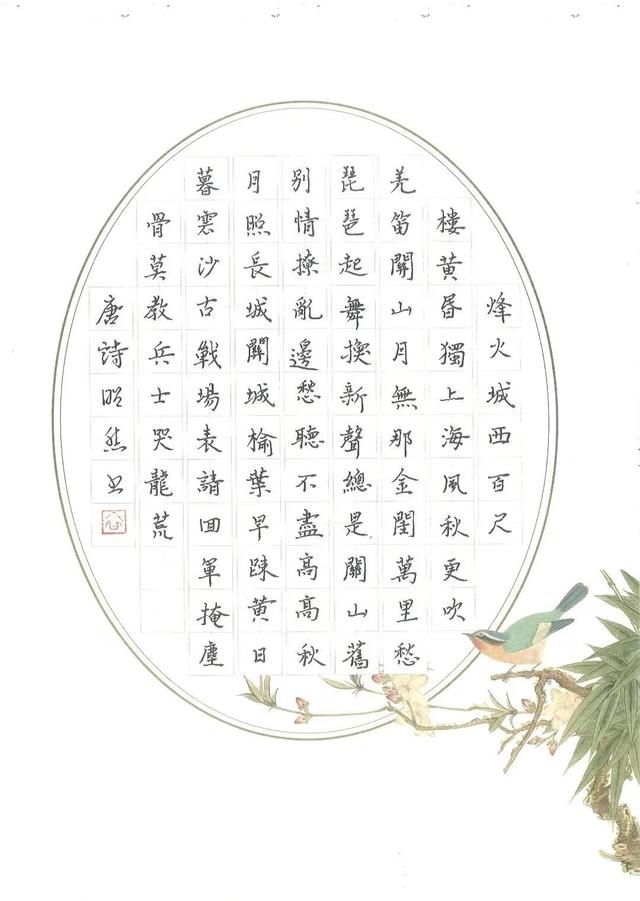 烽火城西百尺
樓黃昏獨上海風秋更吹
羌笛關山月無那金閨萬里愁
琵琶起舞換新聲總是關山舊
別情撩亂邊愁聽不盡高高秋
月照長城關城榆葉早踈黃日
暮雲沙古戰場表請囬軍掩塵
骨莫教兵士哭龍荒
唐詩昭然书